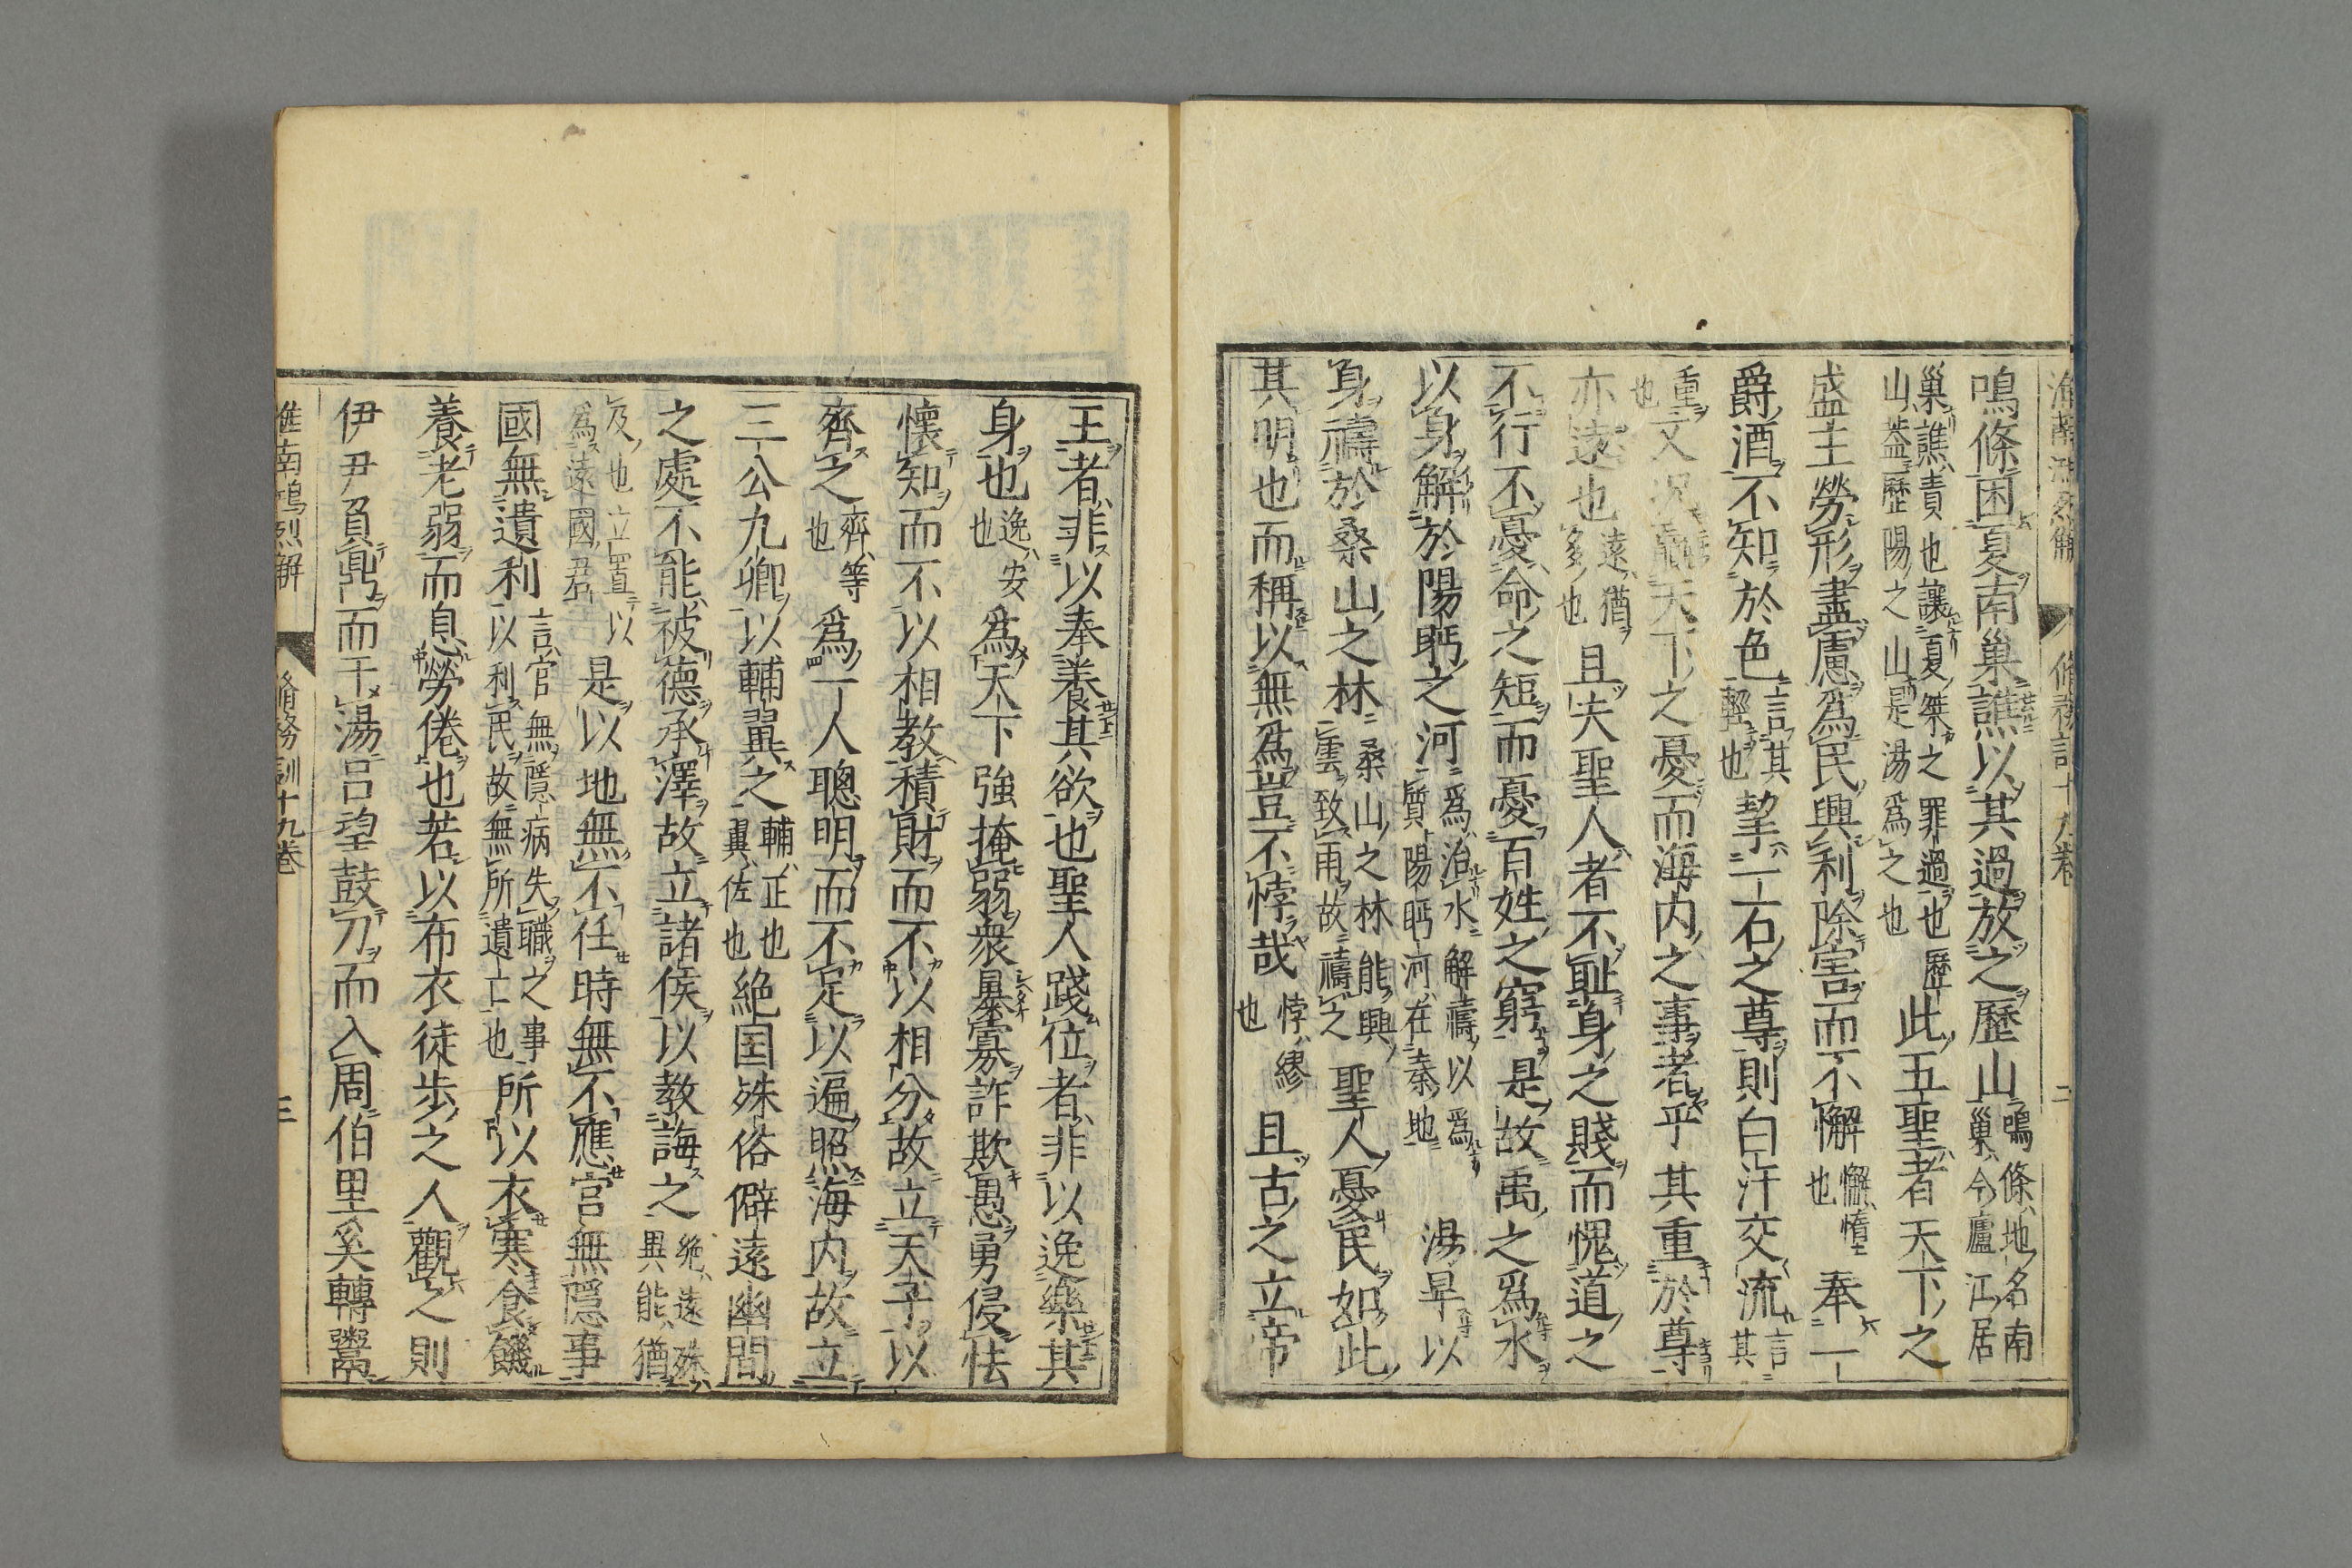 淮南鴻烈解 脩務訓十九卷 二
鳴條困夏南巢譙以其過放之歷山鳴條地名南巢今廬江居
巢譙責也讓夏桀之罪過也歷山蓋歷陽之山是湯爲之也此五聖者天下之
盛主勞形盡慮爲民興利除害而不懈懈惰也奉一
爵酒不知於色言其輕也挈一石之尊則白汗交流言其
重也又況贏天下之憂而海内之事者乎其重於尊
亦遠也遠猶多也且夫聖人者不耻身之賤而愧道之
不行不憂命之短而憂百姓之窮是故禹之爲水
以身解於陽眄之河爲治水解禱以爲質陽眄河在秦地湯旱以
身禱於桑山之林桑山之林能興雲致雨故禱之聖人憂民如此
其明也而稱以無爲豈不悖哉悖繆也且古之立帝
王者非以奉養其欲也聖人踐位者非以逸樂其
身也逸安也爲天下強掩弱衆暴寡詐欺愚勇侵怯
懷知而不以相教積財而不以相分故立天子以
齊之齊等也爲一人聰明而不足以遍照海内故立
三公九卿以輔翼之輔正也翼佐也絶国殊俗僻遠幽間
之處不能被德承澤故立諸侯以教誨之絶遠殊異能猶
及也立置以爲遠國君是以地無不任時無不應官無隱事
國無遺利言官無隱病失職之事以利民故無所遺亡也所以衣寒食饑
養老弱而息勞倦也若以布衣徒步之人觀之則
伊尹負鼎而干湯呂望鼓刀而入周伯里奚轉鬻
淮南鴻烈解 脩務訓十九卷 三